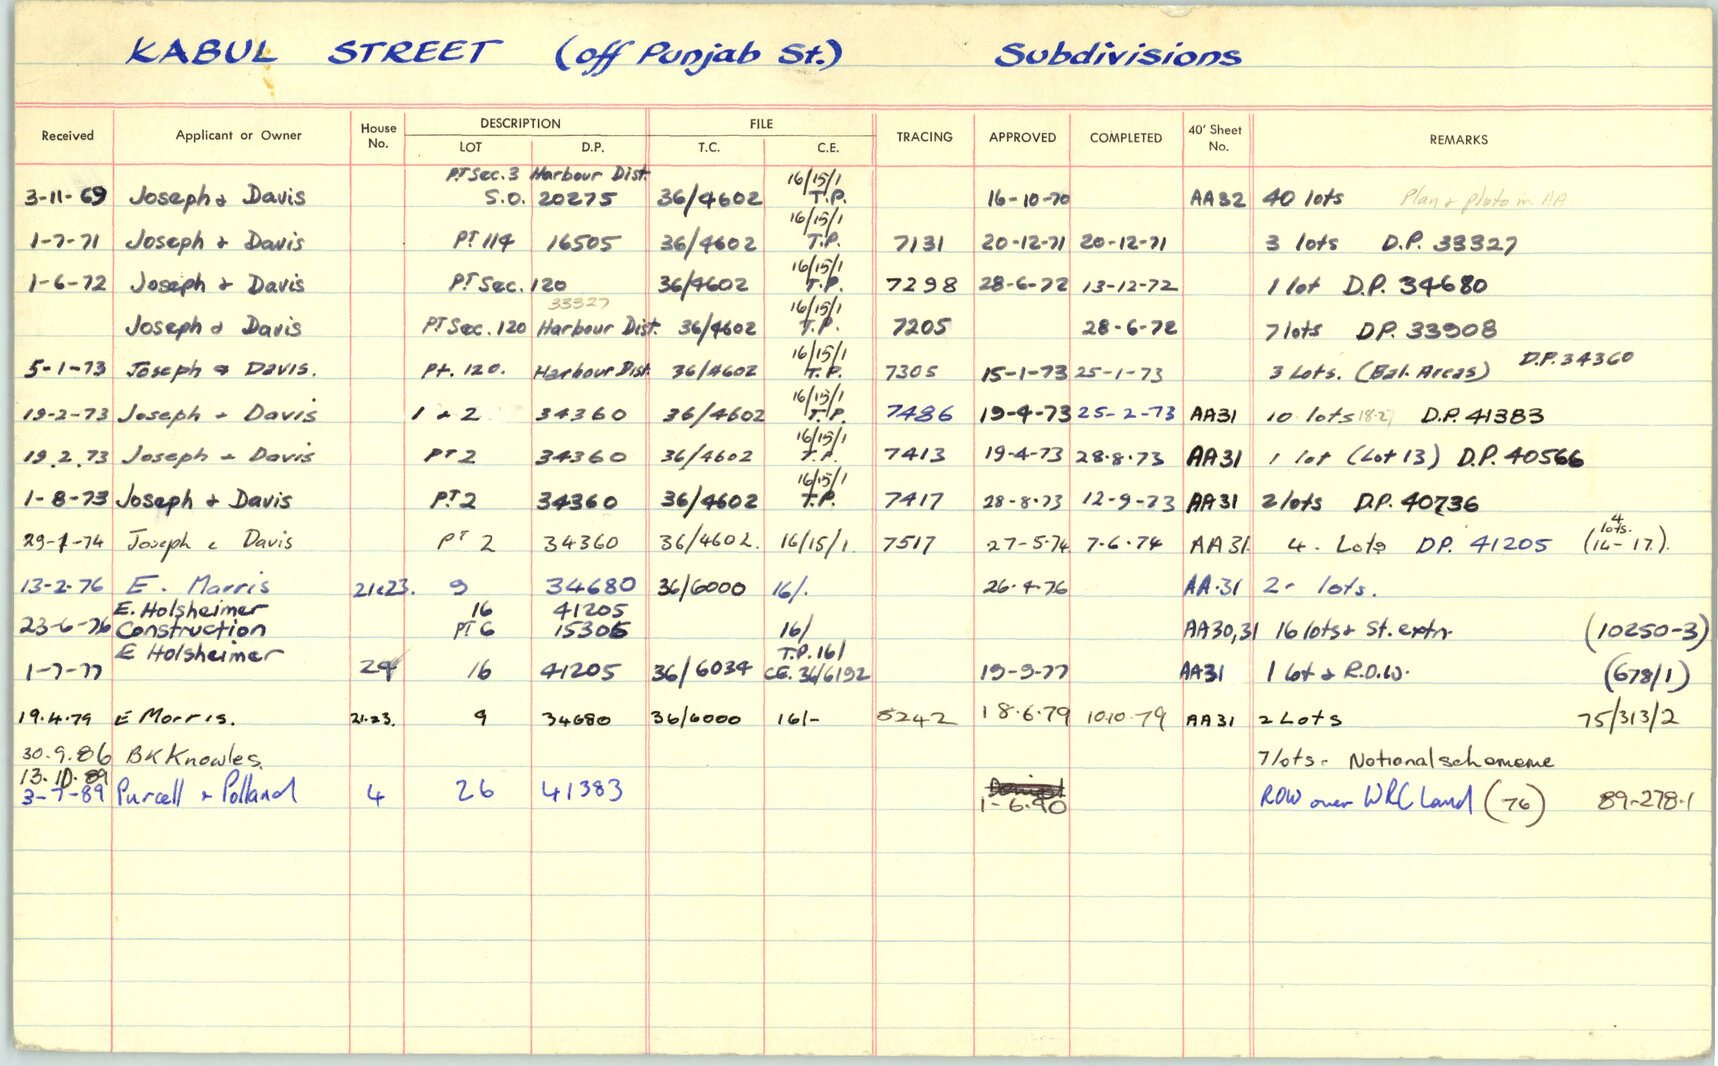 KABUL STREET (off Punjab St.) Subdivisions
Received Applicant or Owner House No. DESCRIPTION LOT D.P. FILE T.C. C.E. TRACING APPROVED COMPLETED 40' Sheet No. REMARKS
PT Sec. 3 Harbour Dist. 16/15/1
3-11-69 Joseph & Davis S.O. 20275 36/4602 T.P. 16-10-70 AA32 40 lots Plan & photo in AA
16/15/1
1-7-71 Joseph & Davis PT 114 16505 36/4602 T.P. 7131 20-12-71 20-12-71 3 lots D.P. 33327
16/15/1
1-6-72 Joseph & Davis PT Sec. 120 36/4602 T.P. 7298 28-6-72 13-12-72 1 lot D.P. 34680
33327 16/15/1
Joseph & Davis PT Sec. 120 Harbour Dist. 36/4602 T.P. 7205 28-6-72 7 lots D.P. 33908
16/15/1
5-1-73 Joseph & Davis. Pt. 120. Harbour Dist. 36/4602 T.P. 7305 15-1-73 25-1-73 3 Lots. (Bal. Areas) D.P. 34360
16/15/1
19-2-73 Joseph & Davis 1 & 2 34360 36/4602 T.P. 7486 19-4-73 25-2-73 AA31 10 lots D.P. 41383
16/15/1
19.2.73 Joseph & Davis PT 2 34360 36/4602 T.P. 7413 19-4-73 28-8-73 AA31 1 lot (Lot 13) D.P. 40566
16/15/1
1-8-73 Joseph & Davis PT 2 34360 36/4602 T.P. 7417 28-8-73 12-9-73 AA31 2 lots D.P. 40736
29-1-74 Joseph & Davis PT 2 34360 36/4602. 16/15/1. 7517 27-5-74 7-6-74 AA31 4. Lots DP. 41205 4 lots. (14-17).
13-2-76 E. Morris 21&23. 9 34680 36/6000 16/. 26-4-76 AA.31 2- lots.
E. Holsheimer 16 41205
23-6-76 Construction PT 6 15305 16/ AA30,31 16 lots & St. extn. (10250-3)
E Holsheimer T.P. 16/
1-7-77 24 16 41205 36/6034 CE. 36/6192 19-9-77 AA31 1 lot & R.O.W. (678/1)
19.4.79 E Morris. 21.23. 9 34680 36/6000 16/- 5242 18.6.79 10.10.79 AA31 2 Lots 75/313/2
30.9.86 BK Knowles. 7 lots - Notional schememe
13.10.89
3-7-89 Purcell & Polland 4 26 41383 1-6-90 ROW over WRC Land (76) 89-278-1